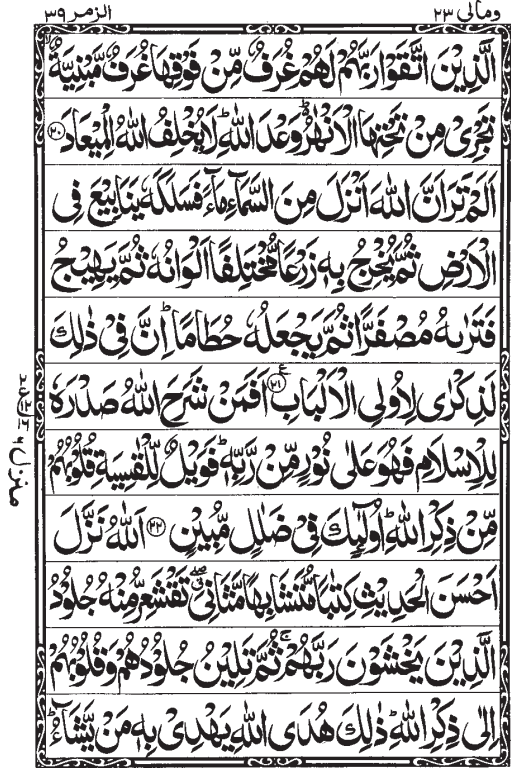 ومالی ۲۳ الزمر ۳۹
الَّذِیْنَ اتَّقَوْا رَبَّهُمْ لَهُمْ غُرَفٌ مِّنْ فَوْقِهَا غُرَفٌ مَّبْنِیَّةٌ ۙ
تَجْرِیْ مِنْ تَحْتِهَا الْاَنْهٰرُ ؕ۬ وَعْدَ اللّٰهِ ؕ لَا یُخْلِفُ اللّٰهُ الْمِیْعَادَ ۟۲۰
اَلَمْ تَرَ اَنَّ اللّٰهَ اَنْزَلَ مِنَ السَّمَآءِ مَآءً فَسَلَكَهٗ یَنَابِیْعَ فِی
الْاَرْضِ ثُمَّ یُخْرِجُ بِهٖ زَرْعًا مُّخْتَلِفًا اَلْوَانُهٗ ثُمَّ یَهِیْجُ
فَتَرٰىهُ مُصْفَرًّا ثُمَّ یَجْعَلُهٗ حُطَامًا ؕ اِنَّ فِیْ ذٰلِكَ
لَذِكْرٰی لِاُولِی الْاَلْبَابِ ۟۲۱ ع اَفَمَنْ شَرَحَ اللّٰهُ صَدْرَهٗ
لِلْاِسْلَامِ فَهُوَ عَلٰی نُوْرٍ مِّنْ رَّبِّهٖ ؕ فَوَیْلٌ لِّلْقٰسِیَةِ قُلُوْبُهُمْ
مِّنْ ذِكْرِ اللّٰهِ ؕ اُولٰٓىِٕكَ فِیْ ضَلٰلٍ مُّبِیْنٍ ۟۲۲ اَللّٰهُ نَزَّلَ
اَحْسَنَ الْحَدِیْثِ كِتٰبًا مُّتَشَابِهًا مَّثَانِیَ ۖۗ تَقْشَعِرُّ مِنْهُ جُلُوْدُ
الَّذِیْنَ یَخْشَوْنَ رَبَّهُمْ ۚ ثُمَّ تَلِیْنُ جُلُوْدُهُمْ وَقُلُوْبُهُمْ
اِلٰی ذِكْرِ اللّٰهِ ؕ ذٰلِكَ هُدَی اللّٰهِ یَهْدِیْ بِهٖ مَنْ یَّشَآءُ ؕ
منزل ۶